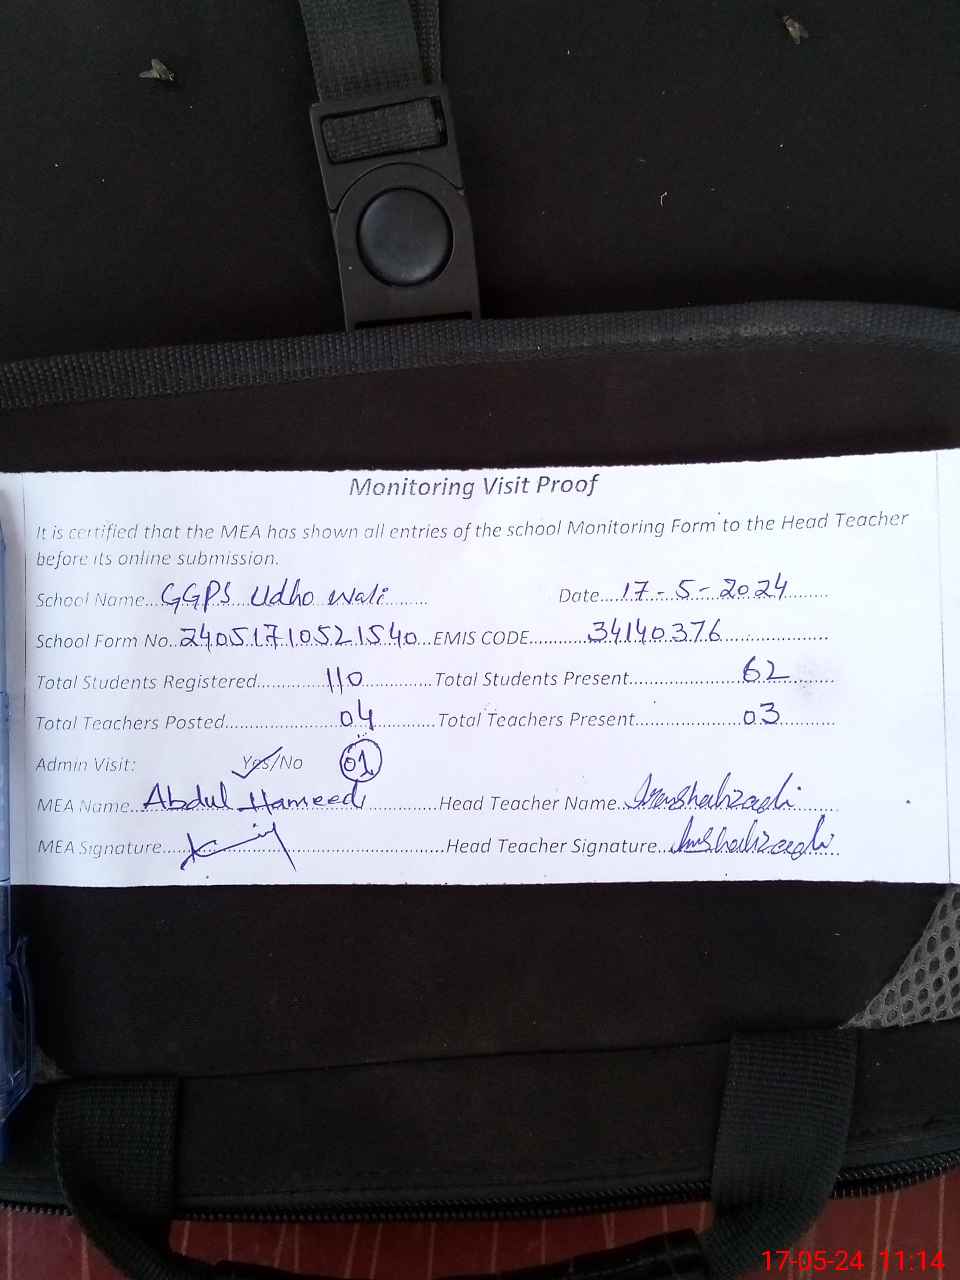 Monitoring Visit Proof
It is certified that the MEA has shown all entries of the school Monitoring Form to the Head Teacher
before its online submission.
School Name...GGPS Udho wali........ Date....17-5-2024........
School Form No..24051710521540...EMIS CODE..........34140376..................
Total Students Registered..............110..............Total Students Present....................62.........
Total Teachers Posted.......................04............Total Teachers Present....................03..........
Admin Visit: Yes/No 01
MEA Name..Abdul Hameed.............Head Teacher Name..
MEA Signature.................................................Head Teacher Signature...
17-05-24 11:14